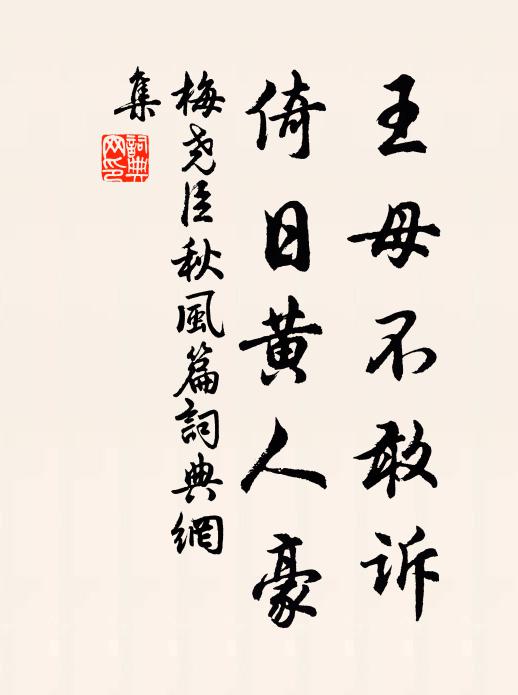 王母不敢訴
倚日黃人豪
梅堯臣秋風篇詞典網
集
詞典
网印